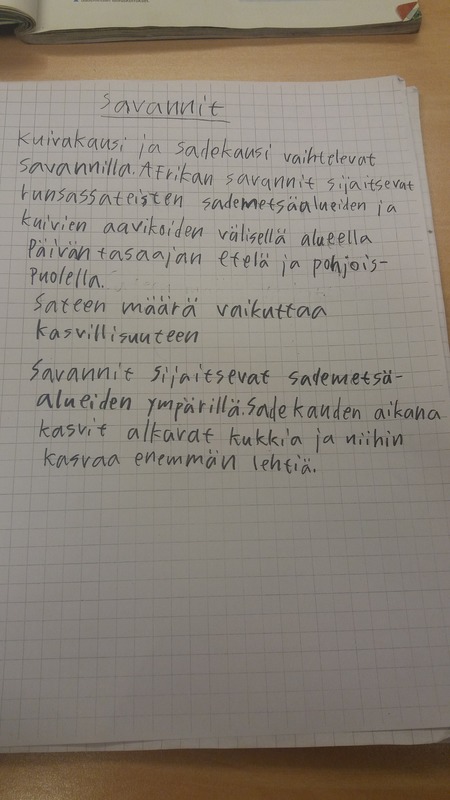 Savannit
Kuivakausi ja sadekausi vaihtelevat
savannilla. Afrikan savannit sijaitsevat
runsassateisten sademetsäalueiden ja
kuivien aavikoiden välisellä alueella
Päivän tasaajan etelä ja pohjois-
puolella.
Sateen määrä vaikuttaa
kasvillisuuteen
Savannit sijaitsevat sademetsä-
alueiden ympärillä. Sadekauden aikana
kasvit alkavat kukkia ja niihin
kasvaa enemmän lehtiä.